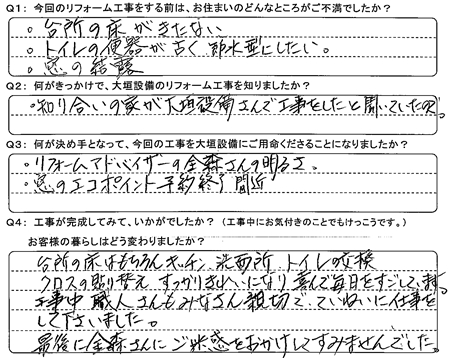 Q1: 今回のリフォーム工事をする前は、お住まいのどんなところがご不満でしたか?
。台所の床がきたない
・トイレの便器が古く、節水型にしたい。
。窓の結露
Q2: 何がきっかけで、大垣設備のリフォーム工事を知りましたか?
・知り合いの家が大垣設備さんで工事をしたと聞いていた
Q3: 何が決め手となって、今回の工事を大垣設備にご用命くださることになりましたか?
・リフォームアドバイザーの金森さんの明るさ。
・窓のエコポイント予約終了間近
Q4: 工事が完成してみて、いかがでしたか? (工事中にお気付きのことでもけっこうです。)
お客様の暮らしはどう変わりましたか?
台所の床はもちろんキッチン、洗面所、トイレの交換
クロスの貼り替え、すっかりきれいになり喜んで毎日をすごして
工事中職人さんもみなさん親切で、ていねいに仕事を
して下さいました。
最後に金森さんにご迷惑をおかけしてすみませんでした。